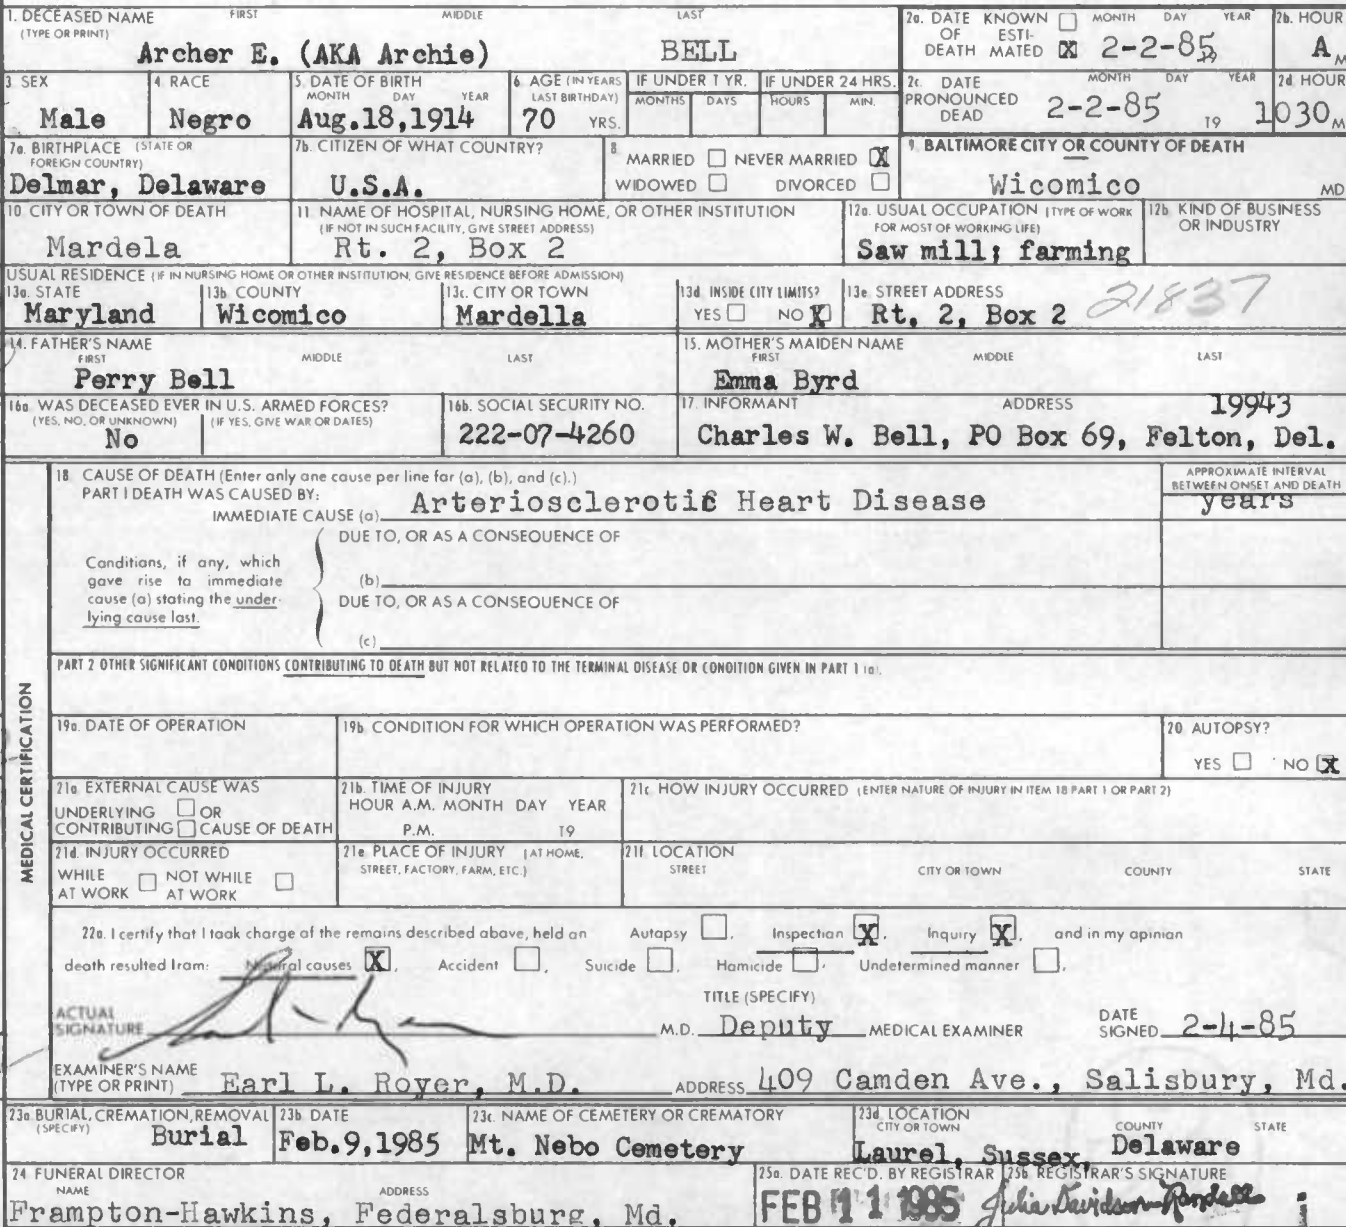 1. DECEASED NAME FIRST MIDDLE LAST
(TYPE OR PRINT)
Archer E. (AKA Archie) BELL
2a. DATE KNOWN ☐ MONTH DAY YEAR 2b. HOUR
OF ESTI-
DEATH MATED ☒ 2-2-85 A M
3. SEX 4. RACE 5. DATE OF BIRTH 6. AGE (IN YEARS IF UNDER 1 YR. IF UNDER 24 HRS.
MONTH DAY YEAR LAST BIRTHDAY) MONTHS DAYS HOURS MIN.
Male Negro Aug.18,1914 70 YRS.
2c. DATE MONTH DAY YEAR 2d. HOUR
PRONOUNCED
DEAD 2-2-85 19 1030 M
7a. BIRTHPLACE (STATE OR
FOREIGN COUNTRY)
Delmar, Delaware
7b. CITIZEN OF WHAT COUNTRY?
U.S.A.
8. MARRIED ☐ NEVER MARRIED ☒
WIDOWED ☐ DIVORCED ☐
9. BALTIMORE CITY OR COUNTY OF DEATH
Wicomico MD
10. CITY OR TOWN OF DEATH
Mardela
11. NAME OF HOSPITAL, NURSING HOME, OR OTHER INSTITUTION
(IF NOT IN SUCH FACILITY, GIVE STREET ADDRESS)
Rt. 2, Box 2
12a. USUAL OCCUPATION (TYPE OF WORK
FOR MOST OF WORKING LIFE)
Saw mill; farming
12b. KIND OF BUSINESS
OR INDUSTRY
USUAL RESIDENCE (IF IN NURSING HOME OR OTHER INSTITUTION, GIVE RESIDENCE BEFORE ADMISSION)
13a. STATE 13b. COUNTY 13c. CITY OR TOWN 13d. INSIDE CITY LIMITS? 13e. STREET ADDRESS
Maryland Wicomico Mardella YES ☐ NO ☒ Rt, 2, Box 2 21837
14. FATHER'S NAME
FIRST MIDDLE LAST
Perry Bell
15. MOTHER'S MAIDEN NAME
FIRST MIDDLE LAST
Emma Byrd
16a. WAS DECEASED EVER IN U.S. ARMED FORCES?
(YES, NO, OR UNKNOWN) (IF YES, GIVE WAR OR DATES)
No
16b. SOCIAL SECURITY NO.
222-07-4260
17. INFORMANT ADDRESS 19943
Charles W. Bell, PO Box 69, Felton, Del.
MEDICAL CERTIFICATION
18. CAUSE OF DEATH (Enter only one cause per line for (a), (b), and (c).)
APPROXIMATE INTERVAL
BETWEEN ONSET AND DEATH
PART I DEATH WAS CAUSED BY:
IMMEDIATE CAUSE (a) Arteriosclerotic Heart Disease years
DUE TO, OR AS A CONSEQUENCE OF
Conditions, if any, which
gave rise to immediate
cause (a) stating the under-
lying cause last.
(b)
DUE TO, OR AS A CONSEQUENCE OF
(c)
PART 2 OTHER SIGNIFICANT CONDITIONS CONTRIBUTING TO DEATH BUT NOT RELATED TO THE TERMINAL DISEASE OR CONDITION GIVEN IN PART 1 (a).
19a. DATE OF OPERATION 19b. CONDITION FOR WHICH OPERATION WAS PERFORMED? 20. AUTOPSY?
YES ☐ NO ☒
21a. EXTERNAL CAUSE WAS
UNDERLYING ☐ OR
CONTRIBUTING ☐ CAUSE OF DEATH
21b. TIME OF INJURY
HOUR A.M. MONTH DAY YEAR
P.M. 19
21c. HOW INJURY OCCURRED (ENTER NATURE OF INJURY IN ITEM 18 PART 1 OR PART 2)
21d. INJURY OCCURRED
WHILE ☐ NOT WHILE ☐
AT WORK AT WORK
21e. PLACE OF INJURY (AT HOME,
STREET, FACTORY, FARM, ETC.)
21f. LOCATION
STREET CITY OR TOWN COUNTY STATE
22a. I certify that I took charge of the remains described above, held an Autopsy ☐, Inspection ☒, Inquiry ☒, and in my opinion
death resulted from: Natural causes ☒, Accident ☐, Suicide ☐, Homicide ☐, Undetermined manner ☐,
TITLE (SPECIFY)
ACTUAL
SIGNATURE M.D. Deputy MEDICAL EXAMINER
DATE
SIGNED 2-4-85
EXAMINER'S NAME
(TYPE OR PRINT) Earl L. Royer, M.D. ADDRESS 409 Camden Ave., Salisbury, Md.
23a. BURIAL, CREMATION, REMOVAL
(SPECIFY) Burial
23b. DATE
Feb.9,1985
23c. NAME OF CEMETERY OR CREMATORY
Mt. Nebo Cemetery
23d. LOCATION
CITY OR TOWN COUNTY STATE
Laurel, Sussex, Delaware
24. FUNERAL DIRECTOR
NAME ADDRESS
Frampton-Hawkins, Federalsburg, Md.
25a. DATE REC'D. BY REGISTRAR
FEB 11 1985
25b. REGISTRAR'S SIGNATURE
Julia Davidson-Randall